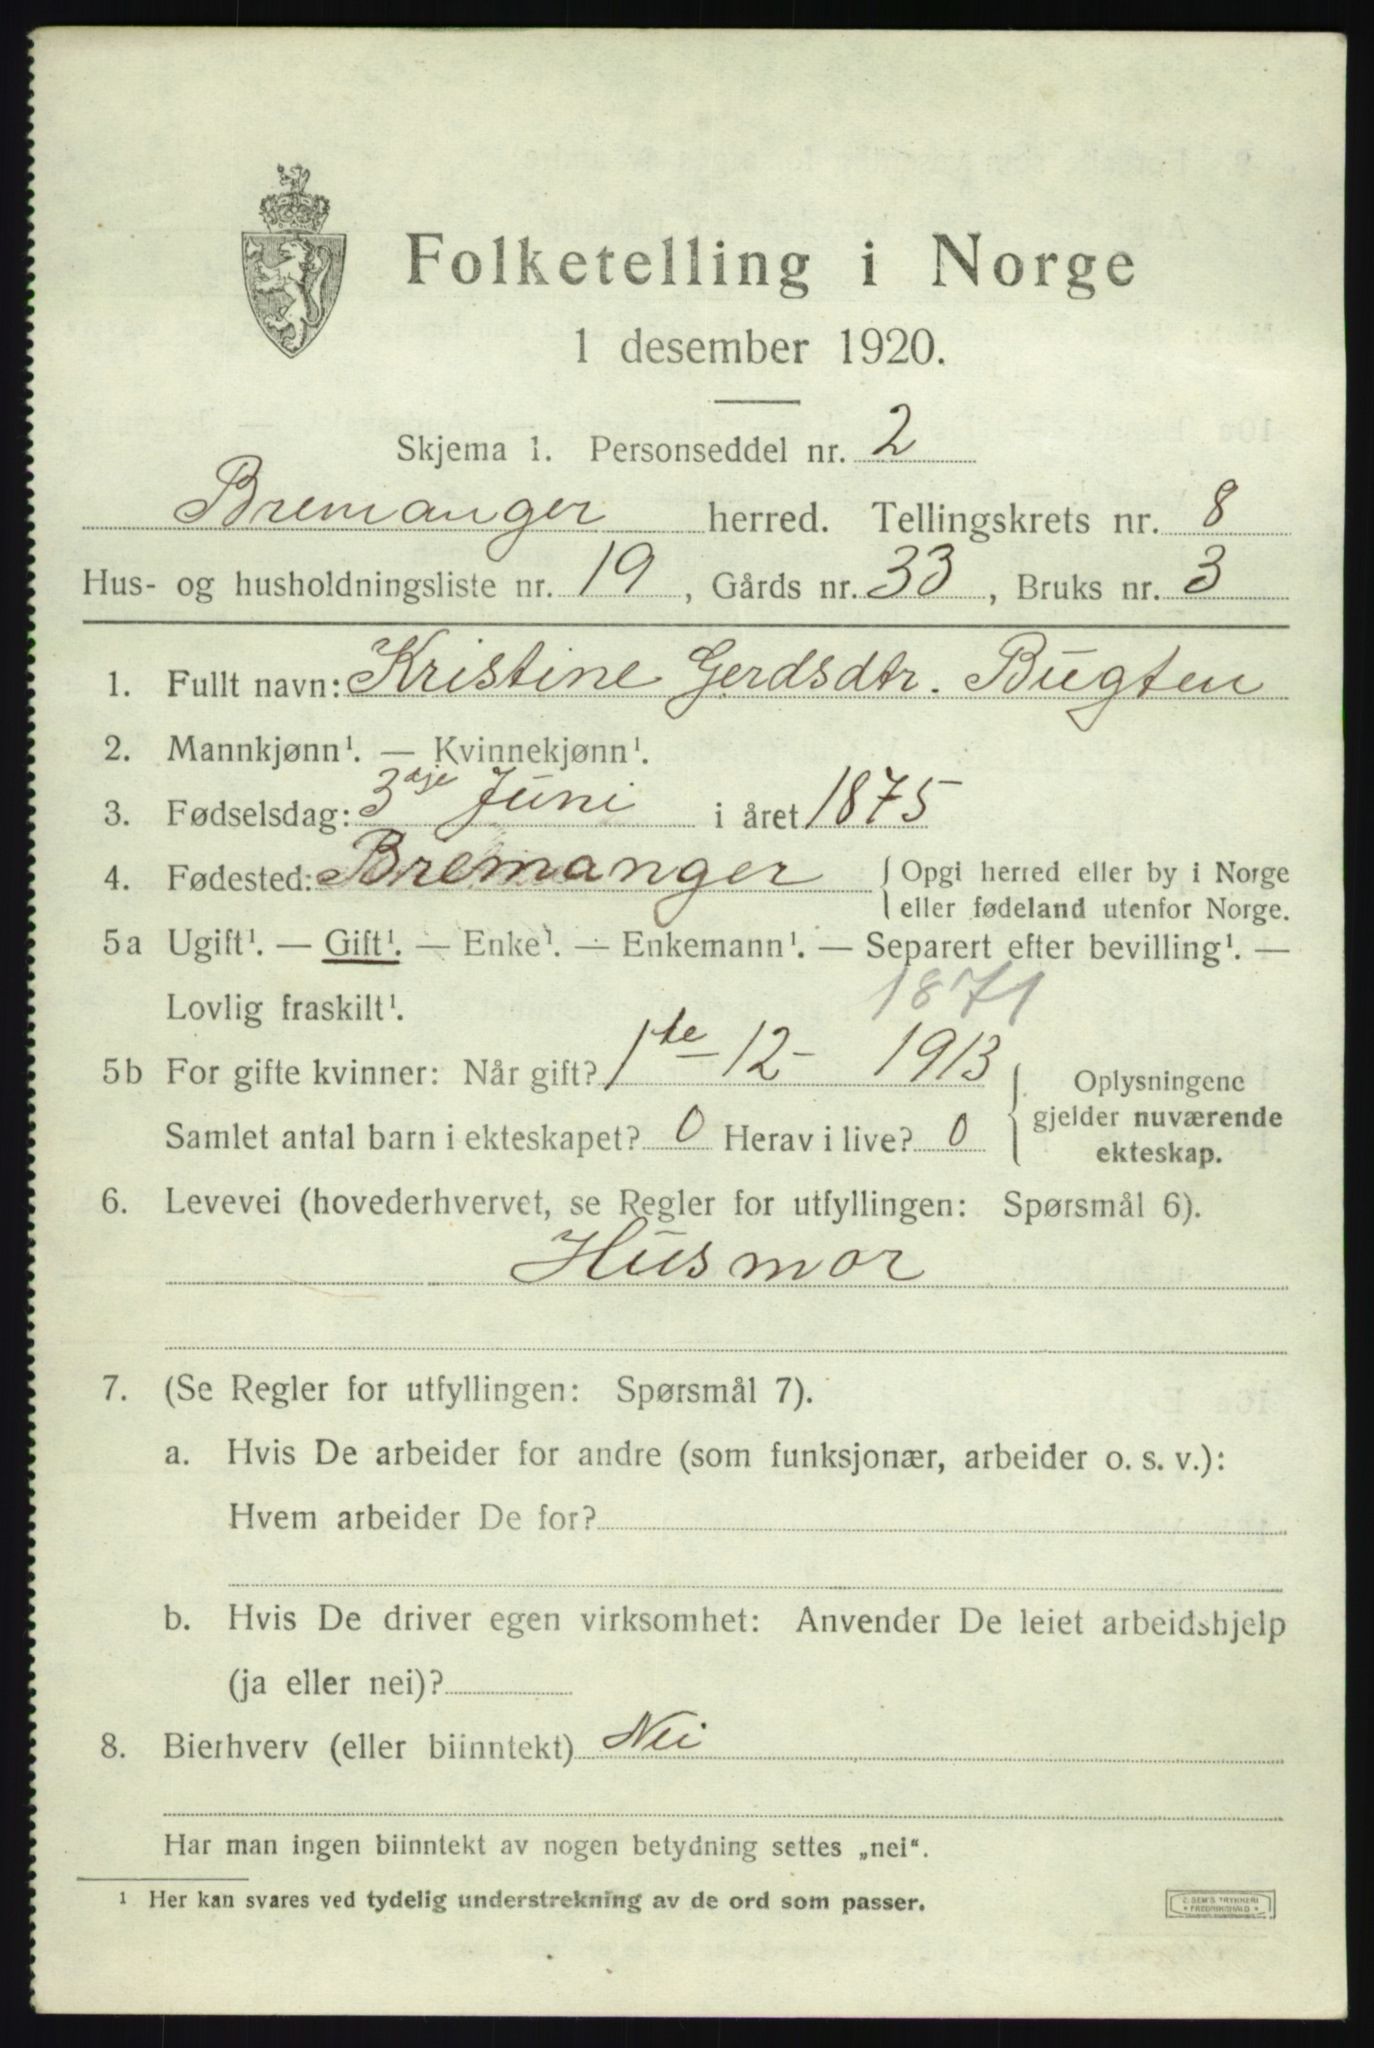 Folketelling i Norge
1 desember 1920.
Skjema 1. Personseddel nr. 2
Bremanger herred. Tellingskrets nr. 8
Hus- og husholdningsliste nr. 19, Gårds nr. 33, Bruks nr. 3
1. Fullt navn: Kristine Gerdsdtr. Bugten
2. Mannkjønn¹. — Kvinnekjønn¹.
3. Fødselsdag: 3dje Juni i året 1875
4. Fødested: Bremanger { Opgi herred eller by i Norge
eller fødeland utenfor Norge.
5a Ugift¹. — Gift¹. — Enke¹. — Enkemann¹. — Separert efter bevilling¹. —
Lovlig fraskilt¹. 1871
5b For gifte kvinner: Når gift? 1te-12- 1913
Samlet antal barn i ekteskapet? 0 Herav i live? 0
Oplysningene
gjelder nuværende
ekteskap.
6. Levevei (hovederhvervet, se Regler for utfyllingen: Spørsmål 6).
Husmor
7. (Se Regler for utfyllingen: Spørsmål 7).
a. Hvis De arbeider for andre (som funksjonær, arbeider o. s. v.):
Hvem arbeider De for?
b. Hvis De driver egen virksomhet: Anvender De leiet arbeidshjelp
(ja eller nei)?
8. Bierhverv (eller biinntekt) Nei
Har man ingen biinntekt av nogen betydning settes „nei“.
¹ Her kan svares ved tydelig understrekning av de ord som passer.
E. SEM'S TRYKKERI
FREDRIKSHALD